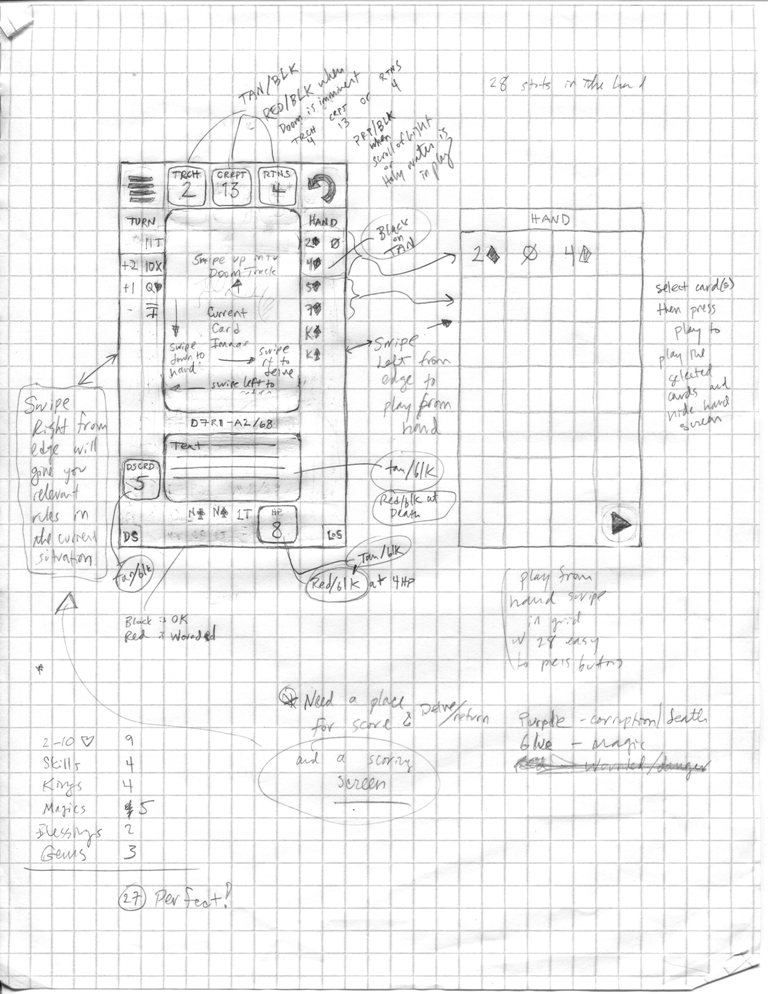 28 slots in the hand
TAN/BLK
RED/BLK when
Doom is imminent
TRCH CRPT or RTNS
4 13 4
PRP/BLK
when
scroll of Light
or
Holy water is
in play
TRCH CRRPT RTNS
2 13 4
TURN
HAND
+2 10X
+1 Q♥
-
2♦ Ø
4♦
5♠
7♠
K♠
K♠
Swipe up into
Doom Track
Current
Card
Image
swipe
down to
hand
swipe
rt to
delve
swipe left to
return
Black
on
TAN
HAND
2♦ Ø 4♦
select card(s)
then press
play to
play the
selected
cards and
hide hand
screen
Swipe
Left from
edge to
play from
hand
D7R11-A2/68
Text
Swipe
Right from
edge will
give you
relevant
rules in
the current
situation
DSCRD
5
tan/blk
Red/blk at
Death
HP
8
DS
LoS
tan/blk
Tan/blk
Red/blk at 4HP
Black is OK
Red is Wounded
play from
hand swipe
in grid
w 28 easy
to press buttons
Need a place
for score & Delve/return
and a scoring
screen
Purple - corruption/death
Blue - magic
Wounded/danger
2-10 ♡ 9
Skills 4
Kings 4
Magics 5
Blessings 2
Gems 3
27 Perfect!